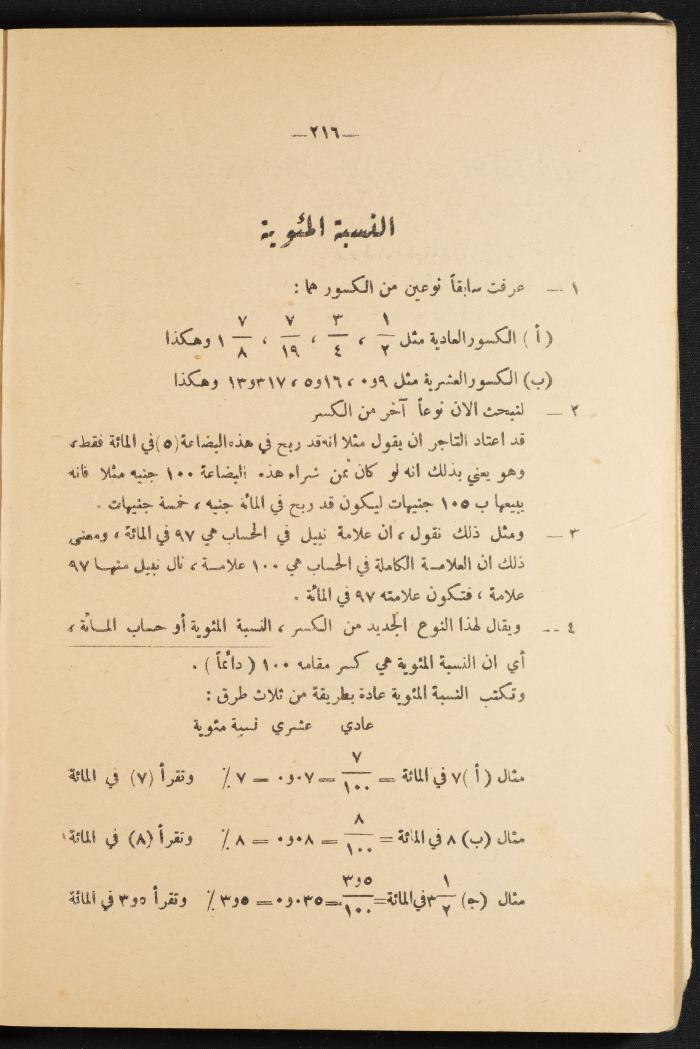 —٢١٦—
النسبة المئوية
١ — عرفت سابقاً نوعين من الكسور هما :
( أ ) الكسور العادية مثل ١/٢ ، ٣/٤ ، ٧/١٩ ، ١ ٧/٨ وهكذا
(ب) الكسور العشرية مثل ٩و٠ ، ١٦و٥ ، ٣١٧و١٣ وهكذا
٢ — لنبحث الان نوعاً آخر من الكسر
قد اعتاد التاجر ان يقول مثلا انه قد ربح في هذه البضاعة (٥) في المائة فقط ،
وهو يعني بذلك انه لو كان ثمن شراء هذه البضاعة ١٠٠ جنيه مثلا فانه
يبيعها ب ١٠٥ جنيهات ليكون قد ربح في المائة جنيه ، خمسة جنيهات .
٣ — ومثل ذلك نقول ، ان علامة نبيل في الحساب هي ٩٧ في المائة ، ومعنى
ذلك ان العلامة الكاملة في الحساب هي ١٠٠ علامة ، نال نبيل منها ٩٧
علامة ، فتكون علامته ٩٧ في المائة .
٤ — ويقال لهذا النوع الجديد من الكسر ، النسبة المئوية أو حساب المائة ،
أي ان النسبة المئوية هي كسر مقامه ١٠٠ ( دائماً ) .
وتكتب النسبة المئوية عادة بطريقة من ثلاث طرق :
عادي عشري نسبة مئوية
مثال ( أ ) ٧ في المائة = ٧/١٠٠ = ٠٧و٠ = ٧ ٪ وتقرأ (٧) في المائة
مثال (ب) ٨ في المائة = ٨/١٠٠ = ٠٨و٠ = ٨ ٪ وتقرأ (٨) في المائة
مثال (ج) ٣ ١/٢ في المائة = ٥و٣/١٠٠ = ٠٣٥و٠ = ٥و٣ ٪ وتقرأ ٥و٣ في المائة